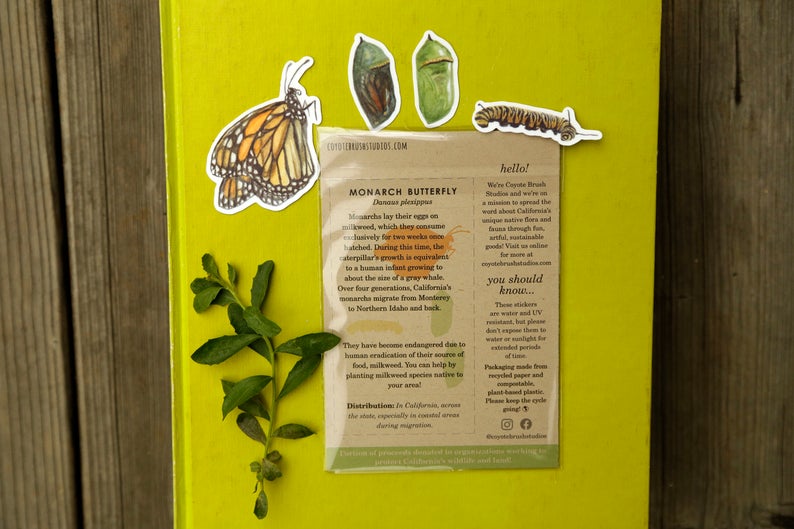 COYOTEBRUSHSTUDIOS.COM
MONARCH BUTTERFLY
Danaus plexippus
Monarchs lay their eggs on
milkweed, which they consume
exclusively for two weeks once
hatched. During this time, the
caterpillar's growth is equivalent
to a human infant growing to
about the size of a gray whale.
Over four generations, California's
monarchs migrate from Monterey
to Northern Idaho and back.
They have become endangered due to
human eradication of their source of
food, milkweed. You can help by
planting milkweed species native to
your area!
Distribution: In California, across
the state, especially in coastal areas
during migration.
hello!
We're Coyote Brush
Studios and we're on
a mission to spread the
word about California's
unique native flora and
fauna through fun,
artful, sustainable
goods! Visit us online
for more at
coyotebrushstudios.com
you should
know...
These stickers
are water and UV
resistant, but please
don't expose them to
water or sunlight for
extended periods
of time.
Packaging made from
recycled paper and
compostable,
plant-based plastic.
Please keep the cycle
going!
@coyotebrushstudios
Portion of proceeds donated to organizations working to
protect California's wildlife and land!